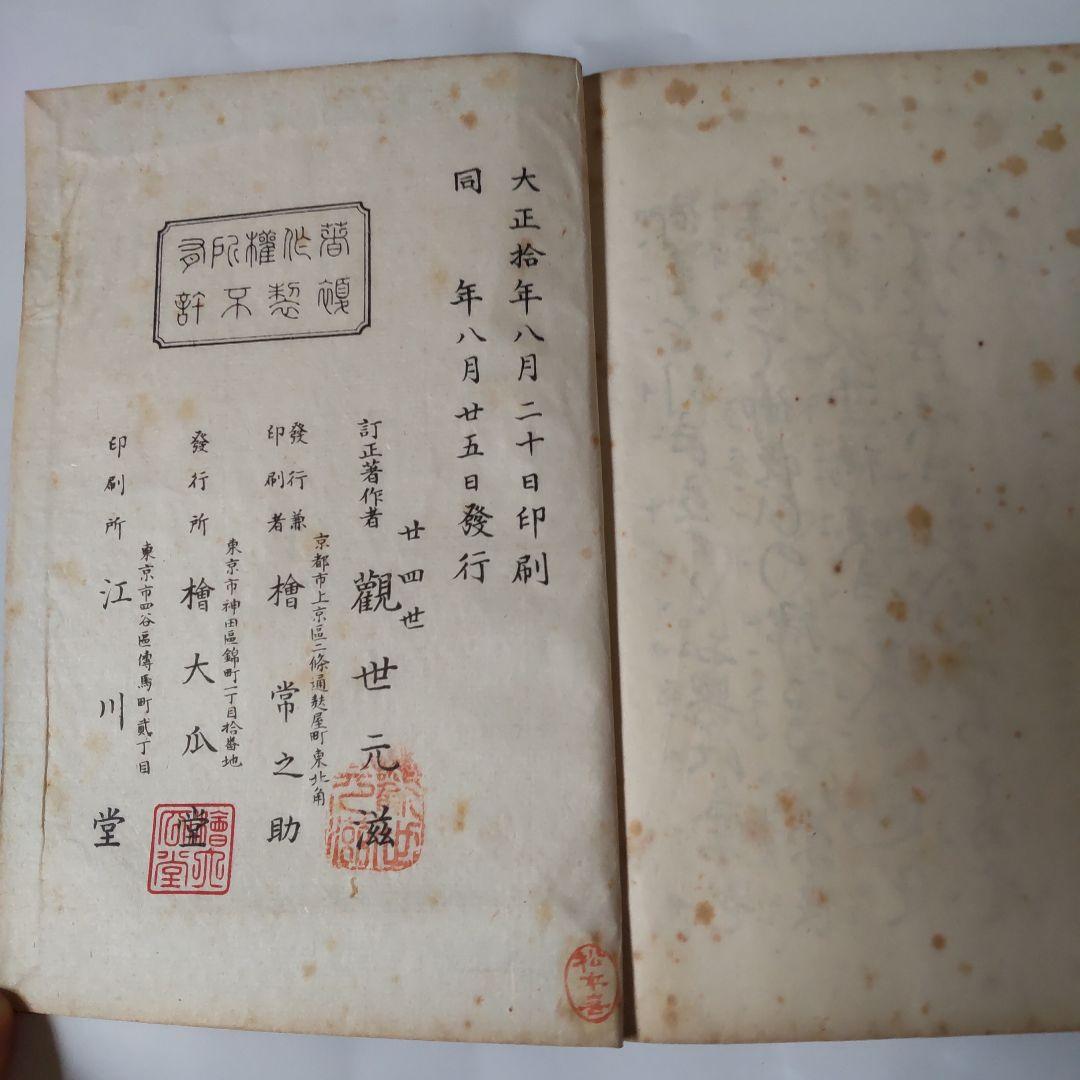 大正拾年八月二十日印刷
同　年八月廿五日發行
著作權所有
複製不許
訂正著作者
廿四世
觀世元滋
發行兼
印刷者
京都市上京區二條通麩屋町東北角
檜常之助
發行所
東京市神田區錦町一丁目拾番地
檜大瓜堂
印刷所
東京市四谷區傳馬町貳丁目
江川堂
觀世
元滋
檜大
瓜堂